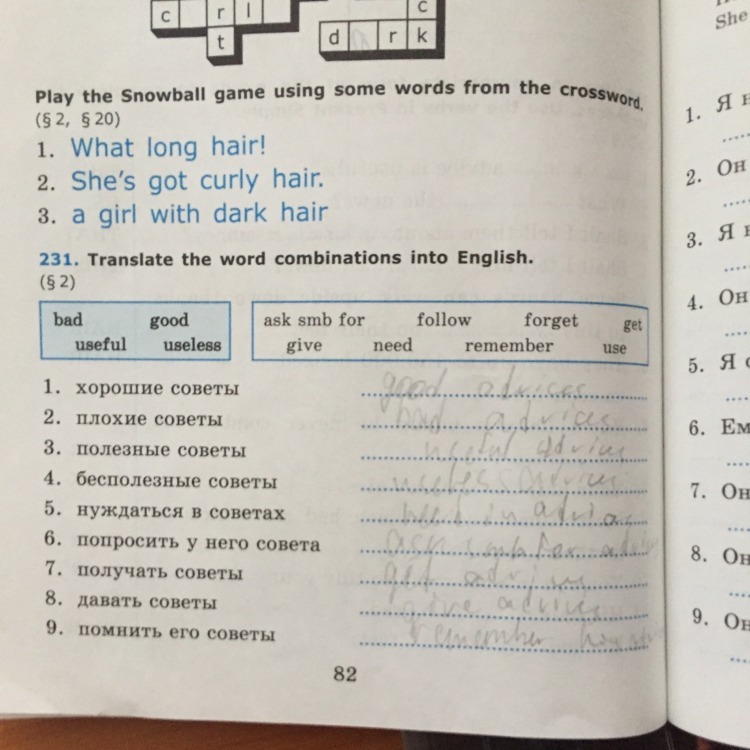 c r l
t
c
d r k
She
Play the Snowball game using some words from the crossword.
(§ 2, § 20)
1. What long hair!
2. She's got curly hair.
3. a girl with dark hair
231. Translate the word combinations into English.
(§ 2)
bad good
useful useless
ask smb for follow forget get
give need remember use
1. хорошие советы good advices
2. плохие советы bad advices
3. полезные советы useful
4. бесполезные советы
5. нуждаться в советах in
6. попросить у него совета ask smb for
7. получать советы get
8. давать советы give
9. помнить его советы remember
82
1. Я
2. Он
3. Я
4. Он
5. Я
6. Ем
7. Он
8. Он
9. Он